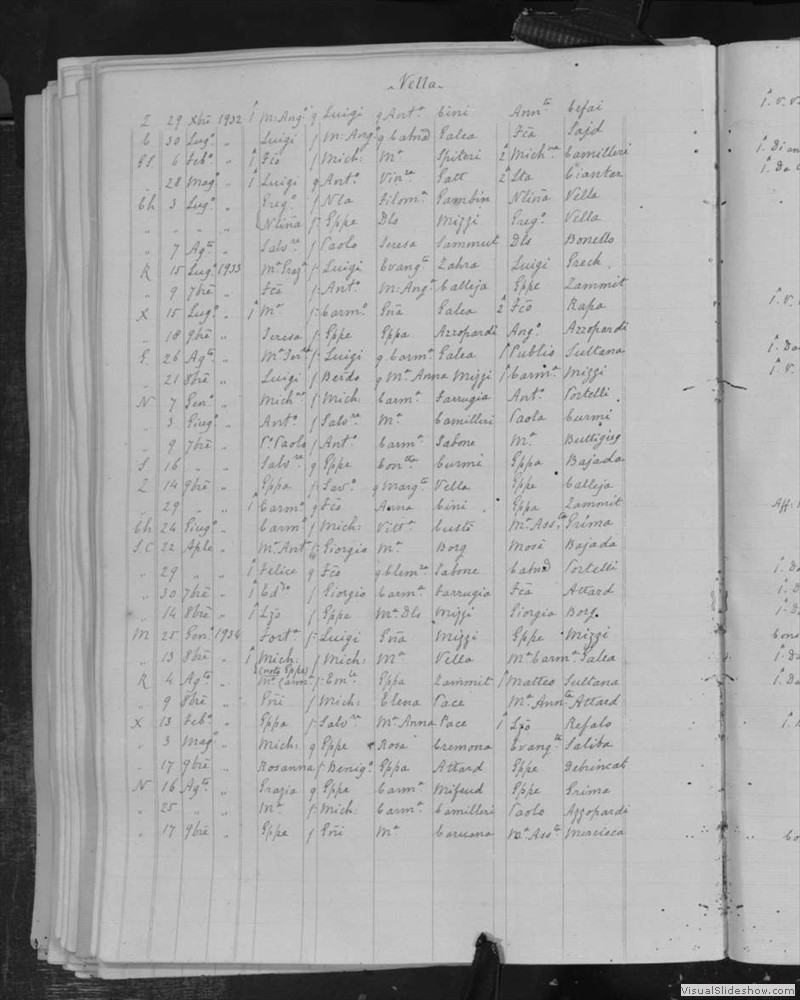 Vella
Z 29 Xbrē 1932 1 M: Angª g Luigi g Antª Cini Annᵗª Cefai
C 30 Lugº " Luigi f M: Angº g Catnđ Galea Fcā Sajd
GS 6 Febº " 1 Fcō f Mich: Mª Spiteri 2 Michⁿª Camilleri
" 28 Magº " 1 Luigi g Antº Vinᶻª Gatt 2 Lta Ciantar
Ch 3 Lugº " Gregº f Nla Filomª Gambin Ntiña Vella
" " " " Ntiña f Gppe Dls Mizzi Gregº Vella
" 7 Agᵗº " Salvʳᵉ f Paolo Teresa Sammut Dls Bonello
K 15 Lugº 1933 Mª Grazª f Luigi Evangᵗª Zahra Luigi Grech
" 9 7brē " Fcā f Antº M: Angª Calleja Gppe Zammit
X 15 Lugº " 1 Mª f Carmº Gña Galea 2 Fcō Rapa
" 18 9brē " Teresa f Gppe Gppa Azzopardi Angº Azzopardi
G 26 Agᵗº " f Luigi g Carmª Galea 1 Publio Sultana
" 21 8brē " Luigi f Berdo g Mª Anna Mizzi 1 Carmª Mizzi
N 7 Genº " Michⁿª f Mich: Carmª Farrugia Antº Portelli
" 3 Giugº " Antº f Salvʳᵉ Mª Camilleri Paola Curmi
" 9 7brē " P. Paolo f Antº Carmª Sabone Mª Buttigieg
S 16 " " Salvʳᵉ g Gppe Conᵗᵗª Curmi Gppa Bajada
Z 14 9brē " Gppa f Savº g Margᵗª Vella Gppe Calleja
" 29 " " 1 Carmº g Fcō Anna Cini Gppa Zammit
Ch 24 Giugº " Carmº f Mich: Vittª Custò Mª Assᵗª Grima
S.C 22 Aplē " Mª Antª f Giorgio Mª Borg Mosè Bajada
" 29 " " 1 Felice g Fcō g Clemᶻª Sabone Catnđ Portelli
" 30 7brē " 1 Edᵈº f Giorgio Carmª Farrugia Fcā Attard
" 14 8brē " 1 Ljō f Gppe Mª Dls Mizzi Giorgia Borg
M 25 Genº 1934 Fortº f Luigi Gña Mizzi Gppe Mizzi
" 13 8brē " 1 Mich: f Mich: Mª Vella Mª Carmª Galea
(nota Gppa)
K 4 Agᵗº " Mª Carmª f Emˡᵉ Gppa Zammit 1 Matteo Sultana
" 9 8brē " Gñi f Mich: Elena Pace Mª Annᵗª Attard
X 13 Febº " Gppa f Salvʳᵉ Mª Anna Pace 1 Ljō Refalo
" 3 Magº " Mich: g Gppe Rosa Cremona Evangᵗª Saliba
" 17 9brē " Rosanna f Benigº Gppa Attard Gppe Debrincat
N 16 Agᵗº " Grazia g Gppe Carmª Mifsud Gppe Grima
" 25 " " Mª f Mich: Carmª Camilleri Paolo Azzopardi
" 17 9brē " Gppe f Gñi Mª Caruana Mª Assᵗª Mercieca
VisualSlideshow.com